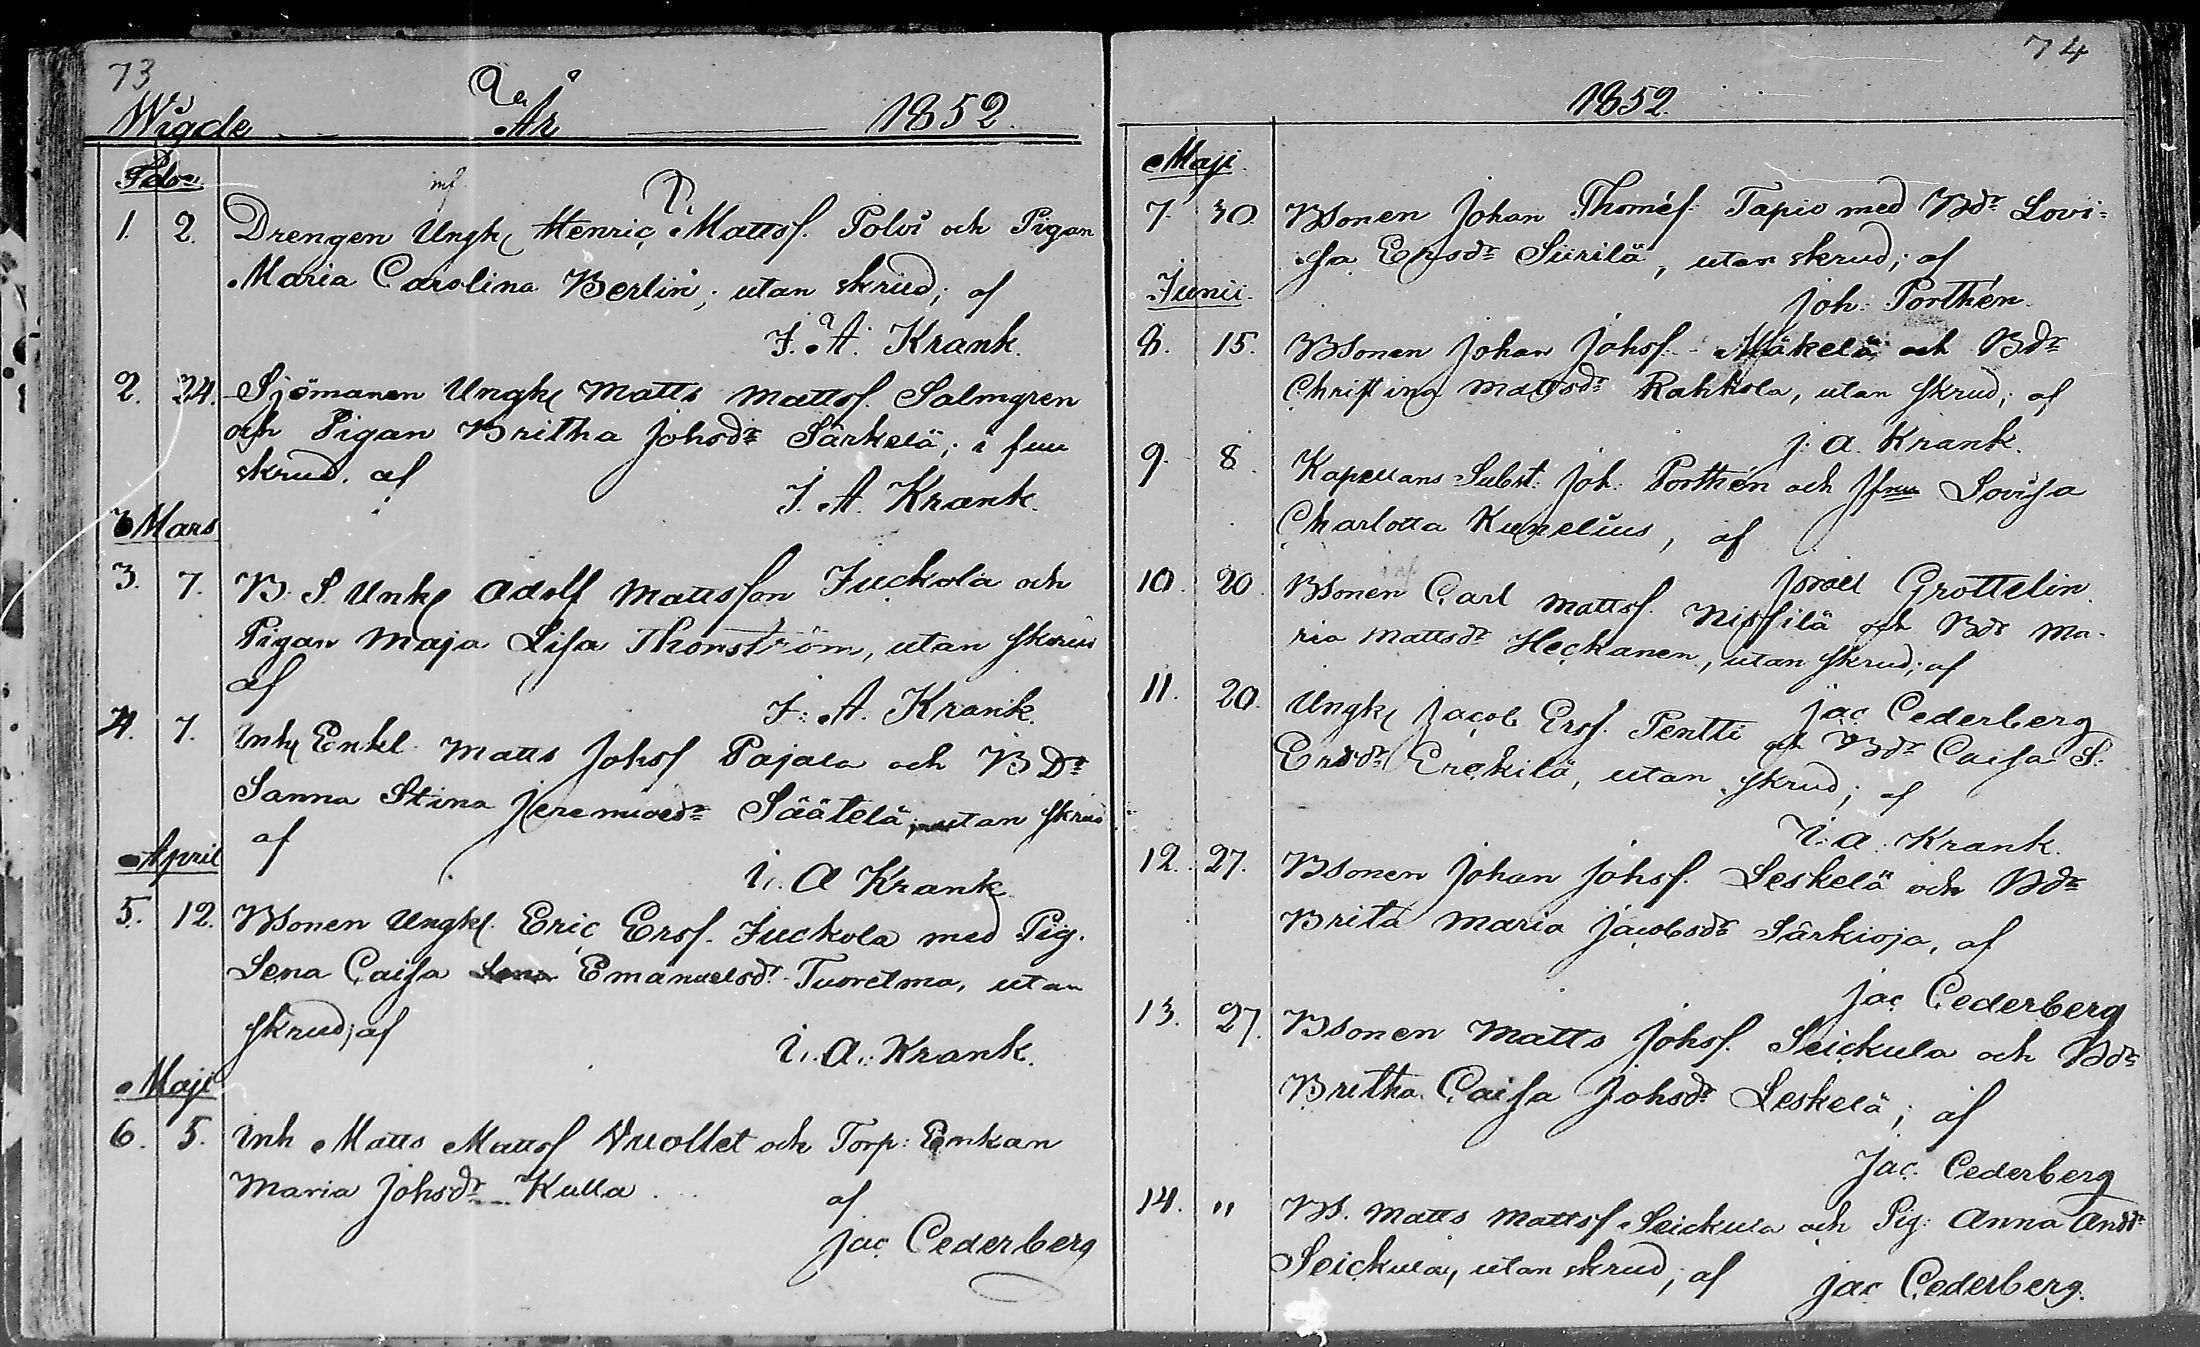 73
Wigde År 1852.
Febr.
1. 2. Drengen Ungk Henric Mattsf. Polvi och Pigan
Maria Carolina Berlin; utan skrud; af
J. A. Krank.
2. 24. Sjömanen Ungk Matts Mattsf. Salmgren
och Pigan Britha Johsdr Särkelä; i full
skrud. af
J. A. Krank.
Mars
3. 7. B. S. Unk Adolf Mattsson Juckola och
Pigan Maja Lisa Thonström, utan skrud
af
J. A. Krank.
4. 7. Inh Enkl Matts Johsf Pajala och B Dr
Sanna Stina Jeremiædr Säätelä, utan skrud
af
I. A Krank
April
5. 12. BSonen Ungk. Eric Ersf. Juckola med Pig.
Lena Caisa Emanuelsdr Tuorelma, utan
skrud; af
I. A. Krank.
Maji
6. 5. Inh Matts Mattsf Vuollet och Torp: Enkan
Maria Johsdr Kulla
af
Jac Cederberg
74
1852.
Maji
7. 30. BSonen Johan Thomésf. Tapio med Bdr Lovi-
sa Ersdr Siirilä, utan skrud; af
Joh: Porthén.
Junii.
8. 15. BSonen Johan Johsf. Mäkelä och Bdr
Christina Mattsdr Rahkola, utan skrud; af
J. A. Krank.
9. 8. Kapellans Subst: Joh: Porthén och Jfru Lovisa
Charlotta Kunelius, af
Israel Grottelin.
10. 20. BSonen Carl Mattsf. Nissilä och Bdr Ma-
ria Mattsdr Heckanen, utan skrud; af
Jac Cederberg
11. 20. Ungk Jacob Ersf. Pentti och Bdr Caisa S.
Ersdr Erckilä, utan skrud; af
I. A. Krank.
12. 27. BSonen Johan Johsf. Leskelä och Bdr
Brita Maria Jacobsdr Särkioja, af
Jac Cederberg
13. 27. BSonen Matts Johsf. Seickula och Bdr
Britha Caisa Johsdr Leskelä; af
Jac. Cederberg
14. " BS. Matts Mattsf. Seickula och Pig: Anna Andsdr
Seickula, utan skrud; af Jac Cederberg.